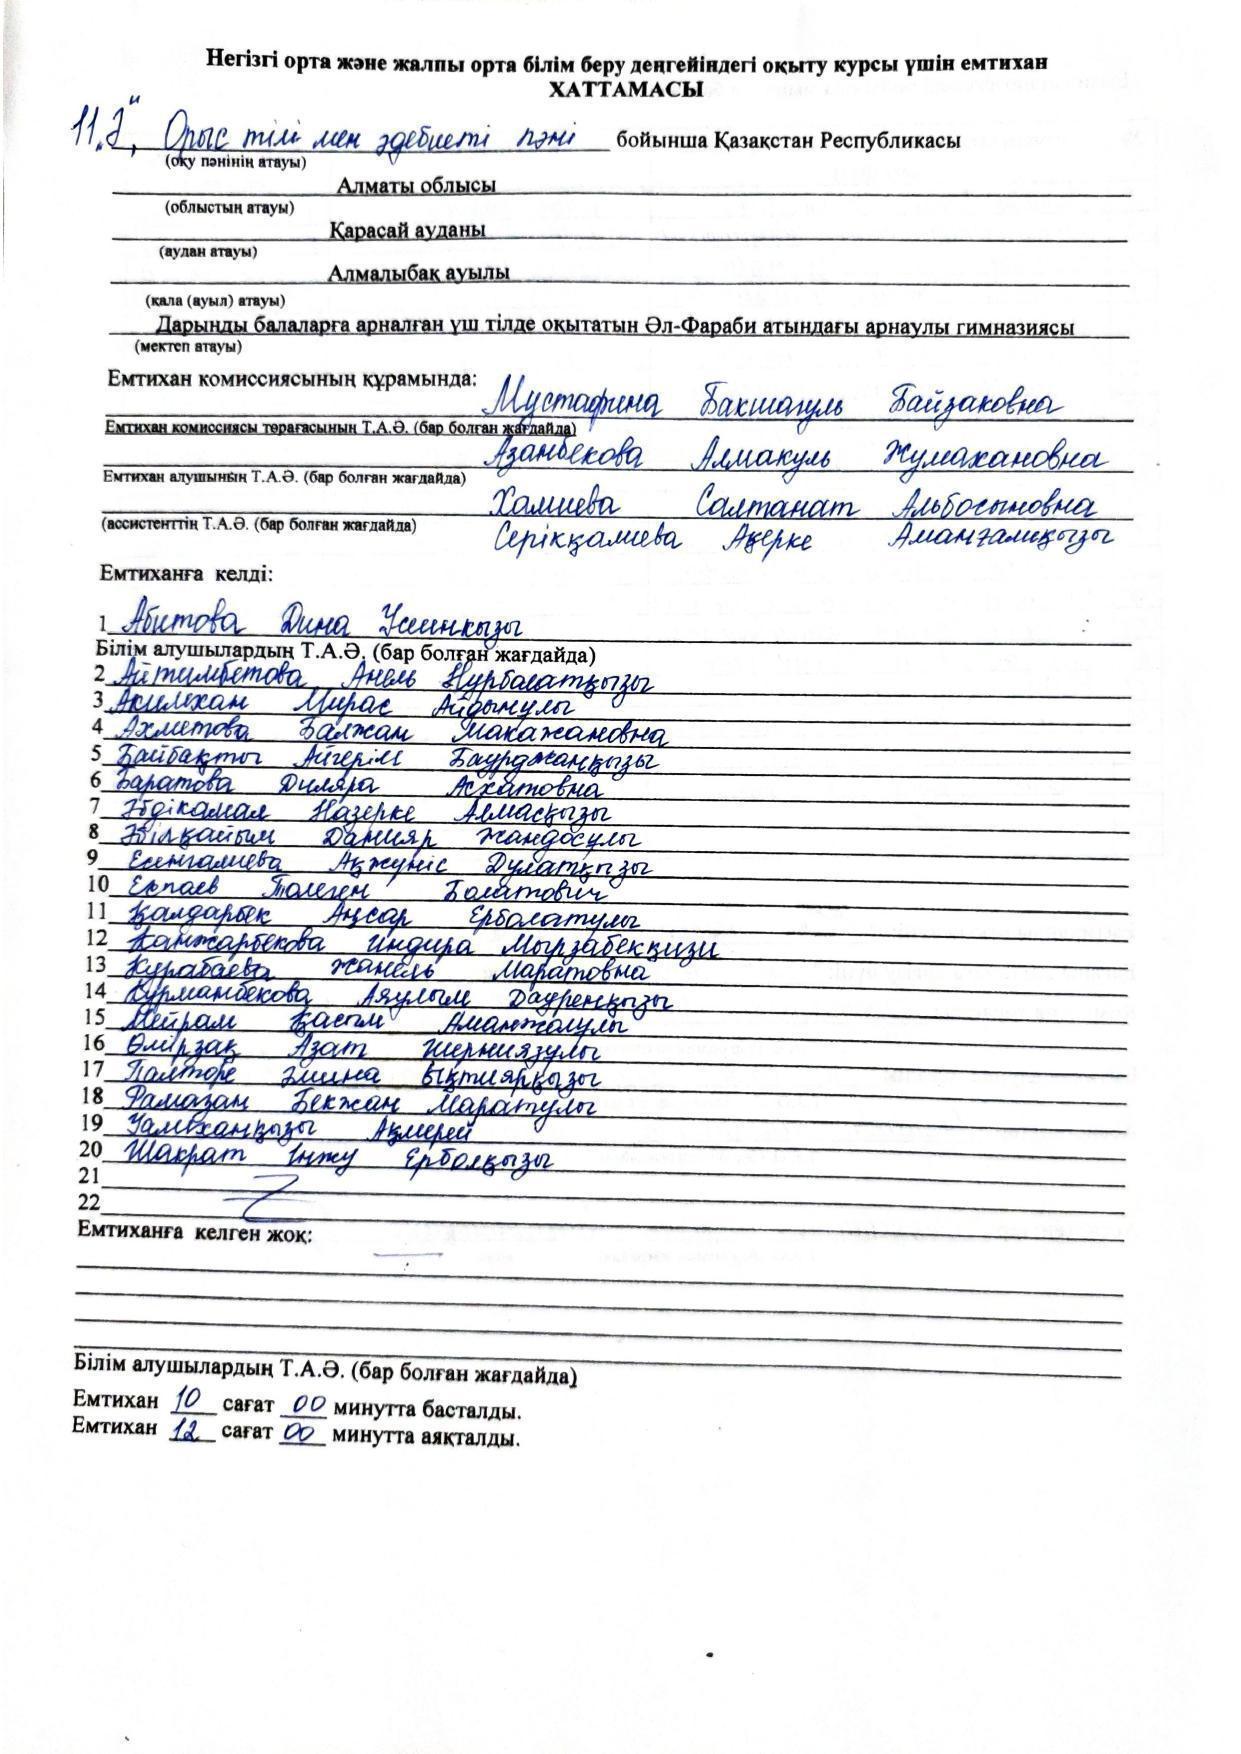 Негізгі орта және жалпы орта білім беру деңгейіндегі оқыту курсы үшін емтихан
ХАТТАМАСЫ
11 "Ә", Орыс тілі мен әдебиеті пәні бойынша Қазақстан Республикасы
(оқу пәнінің атауы)
Алматы облысы
(облыстың атауы)
Қарасай ауданы
(аудан атауы)
Алмалыбақ ауылы
(қала (ауыл) атауы)
Дарынды балаларға арналған үш тілде оқытатын Әл-Фараби атындағы арнаулы гимназиясы
(мектеп атауы)
Емтихан комиссиясының құрамында:
Мустафина Бакшагуль Байзаковна
Емтихан комиссиясы төрағасының Т.А.Ә. (бар болған жағдайда)
Азанбекова Алмакуль Жумахановна
Емтихан алушының Т.А.Ә. (бар болған жағдайда)
Хамиева Салтанат Альбосыновна
(ассистенттің Т.А.Ә. (бар болған жағдайда)
Серікқалиева Ақерке Аманғалиқызы
Емтиханға келді:
1 Абитова Дина Усинкызы
Білім алушылардың Т.А.Ә. (бар болған жағдайда)
2 Айтимбетова Анель Нурболатқызы
3 Акилхан Мирас Айдынулы
4 Ахметова Балжан Макажановна
5 Байбақты Айгерім Баурджанқызы
6 Баратова Диляра Асхатовна
7 Әбдікамал Назерке Алмасқызы
8 Әбілқайым Данияр Жандосулы
9 Есенгалиева Ақжүніс Дулатқызы
10 Екпаев Төлеген Болатович
11 Қалдарбек Аңсар Ерболатулы
12 Қанжарбекова Индира Мырзабекқизи
13 Курабаева Жанель Маратовна
14 Курманбекова Аяулым Дауренқызы
15 Мейрам Қасым Аманжолулы
16 Өмірзақ Азат Шерниязулы
17 Палторе Элина Ықтиярқызы
18 Рамазан Бекжан Маратулы
19 Уамиханқызы Ақмерей
20 Шакрат Інжу Ерболқызы
21
22
Емтиханға келген жоқ:
Білім алушылардың Т.А.Ә. (бар болған жағдайда)
Емтихан 10 сағат 00 минутта басталды.
Емтихан 12 сағат 00 минутта аяқталды.